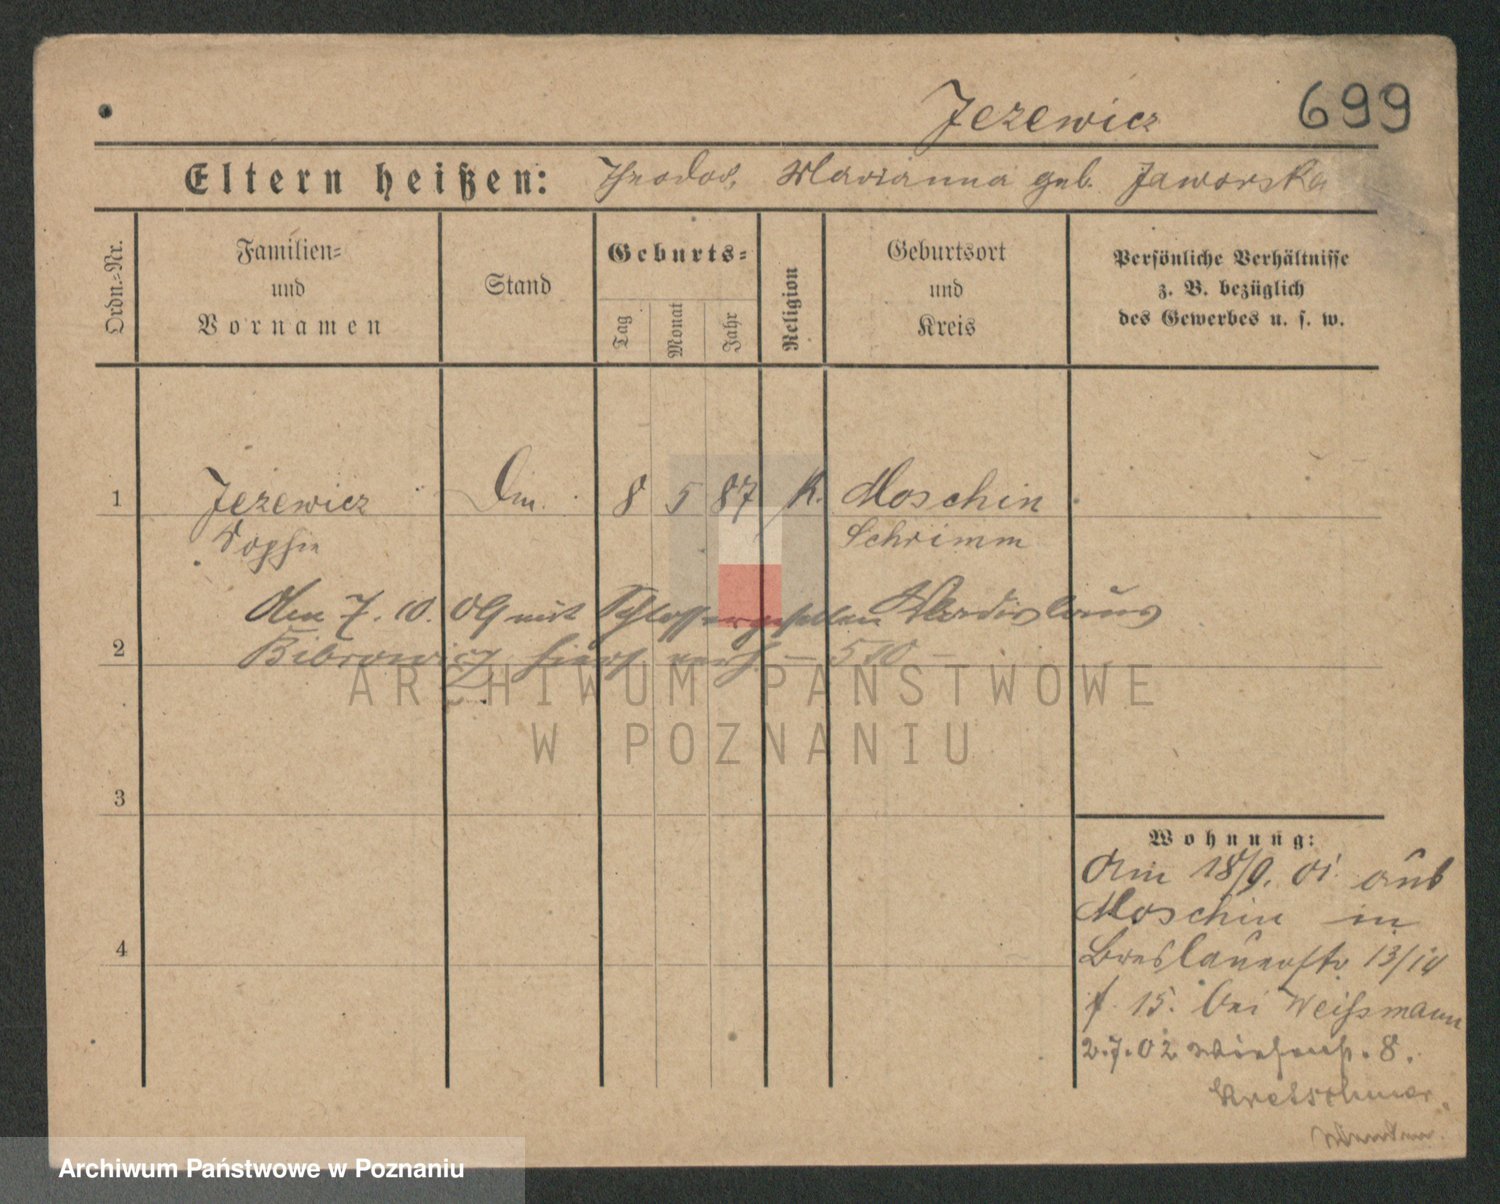 Jezewicz 699
Eltern heißen: Theodor, Marianna geb. Jaworska
Ordn.-Nr.
Familien-
und
Vornamen
Stand
Geburts-
Tag
Monat
Jahr
Religion
Geburtsort
und
Kreis
Persönliche Verhältnisse
z. B. bezüglich
des Gewerbes u. s. w.
1 Jezewicz Dm. 8 5 87 K. Moschin
Sophie Schrimm
Am 7. 10. 09 mit Schlossergesellen Wladislaus
2 Bibrowicz hier verh. – 510 –
ARCHIWUM PAŃSTWOWE
W POZNANIU
3
4
Wohnung:
Am 18/9. 01 aus
Moschin in
Breslauerstr 13/14
f. 15. bei Weißmann
2.7.02 8.
Kretschmer
Archiwum Państwowe w Poznaniu